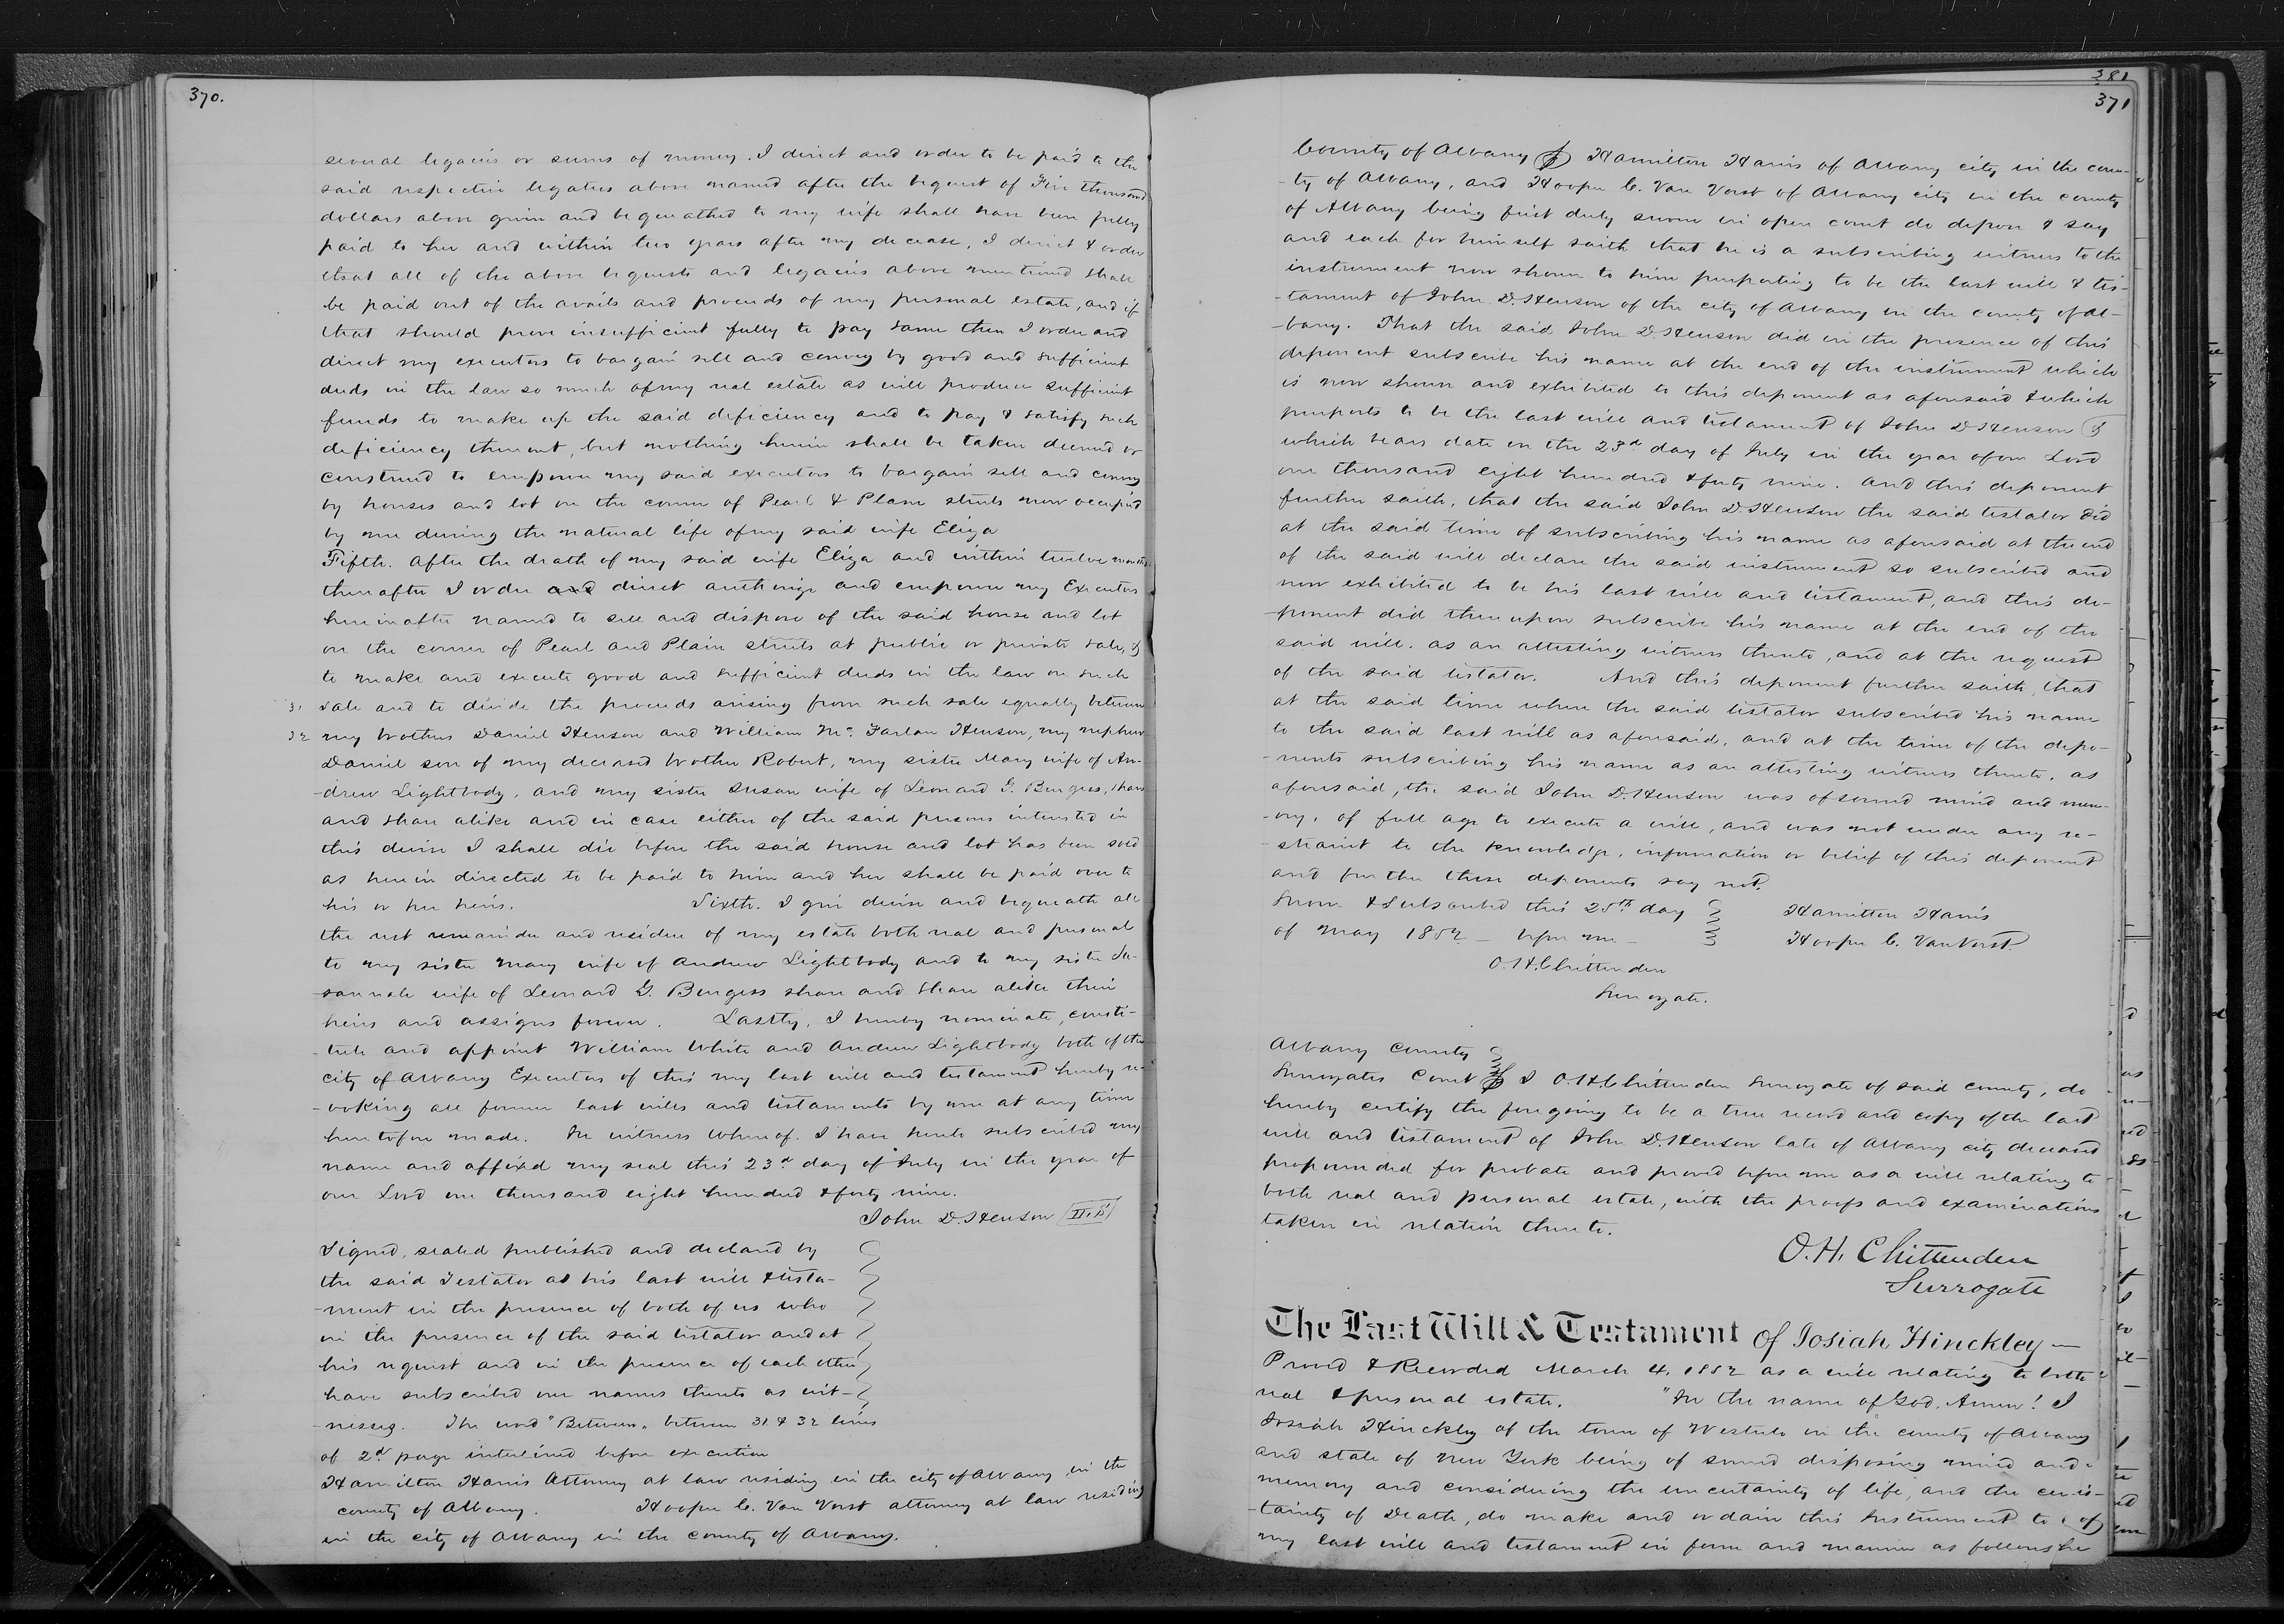 370.
several legacies or sums of money. I direct and order to be paid to the
said respective legatees above named after the bequest of Five thousand
dollars above given and bequeathed to my wife shall have been fully
paid to her and within two years after my decease. I direct & order
that all of the above bequests and legacies above mentioned shall
be paid out of the avails and proceeds of my personal estate, and if
that should prove insufficient fully to pay same then I order and
direct my executors to bargain sell and convey by good and sufficient
deeds in the law so much of my real estate as will produce sufficient
funds to make up the said deficiency and to pay & satisfy such
deficiency thereout, but nothing herein shall be taken deemed or
construed to empower my said executors to bargain sell and convey
by houses and lot on the corner of Pearl & Plain streets now occupied
by me during the natural life of my said wife Eliza
Fifth. After the death of my said wife Eliza and within twelve months
thereafter I order and direct authorize and empower my Executors
hereinafter named to sell and dispose of the said house and lot
on the corner of Pearl and Plain streets at public or private sale, &
to make and execute good and sufficient deeds in the law on such
31 sale and to divide the proceeds arising from such sale equally between
32 my brothers Daniel Henson and William Mc. Farlan Henson, my nephew
Daniel son of my deceased brother Robert, my sister Mary wife of An-
-drew Lightbody, and my sister Susan wife of Leonard G. Burgess, share
and share alike and in case either of the said persons interested in
this devise I shall die before the said house and lot has been sold
as herein directed to be paid to him and her shall be paid over to
his or her heirs. Sixth. I give devise and bequeath all
the rest remainder and residue of my estate both real and personal
to my sister Mary wife of Andrew Lightbody and to my sister Su-
-sannah wife of Leonard G. Burgess share and share alike their
heirs and assigns forever. Lastly, I hereby nominate, consti-
-tute and appoint William White and Andrew Lightbody both of the
city of Albany Executors of this my last will and testament hereby re-
-voking all former last wills and testaments by me at any time
heretofore made. In witness whereof. I have hereto subscribed my
name and affixed my seal this 23d day of July in the year of
our Lord one thousand eight hundred & forty nine.
John D. Henson
Signed, sealed published and declared by
the said Testator as his last will & testa-
-ment in the presence of both of us who
in the presence of the said testator and at
his request and in the presence of each other
have subscribed our names thereto as wit-
-nesses. The word "Between" between 31 & 32 lines
of 2d page interlined before execution
Hamilton Harris Attorney at law residing in the city of Albany in the
county of Albany. Hooper C. Van Vorst attorney at law residing
in the city of Albany in the county of Albany.
381
371
County of Albany Hamilton Harris of Albany city in the coun-
-ty of Albany, and Hooper C. Van Vorst of Albany city in the county
of Albany being first duly sworn in open court do depose & say
and each for himself saith that he is a subscribing witness to the
instrument now shown to him purporting to be the last will & tes-
-tament of John D. Henson of the city of Albany in the county of Al-
-bany. That the said John D. Henson did in the presence of this
deponent subscribe his name at the end of the instrument which
is now shown and exhibited to this deponent as aforesaid & which
purports to be the last will and testament of John D. Henson &
which bears date on the 23d day of July in the year of our Lord
one thousand eight hundred & forty nine. And this deponent
further saith, that the said John D. Henson the said testator did
at the said time of subscribing his name as aforesaid at the end
of the said will declare the said instrument so subscribed and
now exhibited to be his last will and testament, and this de-
-ponent did thereupon subscribe his name at the end of the
said will. as an attesting witness thereto, and at the request
of the said testator. And this deponent further saith, that
at the said time when the said testator subscribed his name
to the said last will as aforesaid, and at the time of the depo-
-nents subscribing his name as an attesting witness thereto, as
aforesaid, the said John D. Henson was of sound mind and mem-
-ory, of full age to execute a will, and was not under any re-
-straint to the knowledge, information or belief of this deponent
and further these deponents say not.
Sworn & Subscribed this 25th day Hamilton Harris
of May 1852 - before me - Hooper C. Van Vorst
O. H. Chittenden
Surrogate.
Albany County
Surrogates Court I O. H. Chittenden Surrogate of said county, do
hereby certify the foregoing to be a true record and copy of the last
will and testament of John D. Henson late of Albany city deceased
propounded for probate and proved before me as a will relating to
both real and personal estate, with the proofs and examinations
taken in relation thereto.
O. H. Chittenden
Surrogate
The Last Will & Testament of Josiah Hinckley —
Proved & Recorded March 4, 1852 as a will relating to both
real & personal estate. "In the name of God, Amen! I
Josiah Hinckley of the town of Westerlo in the county of Albany
and state of New York being of sound disposing mind and
memory and considering the uncertainty of life, and the cer-
-tainty of Death, do make and ordain this Instrument to
my last will and testament in form and manner as follows